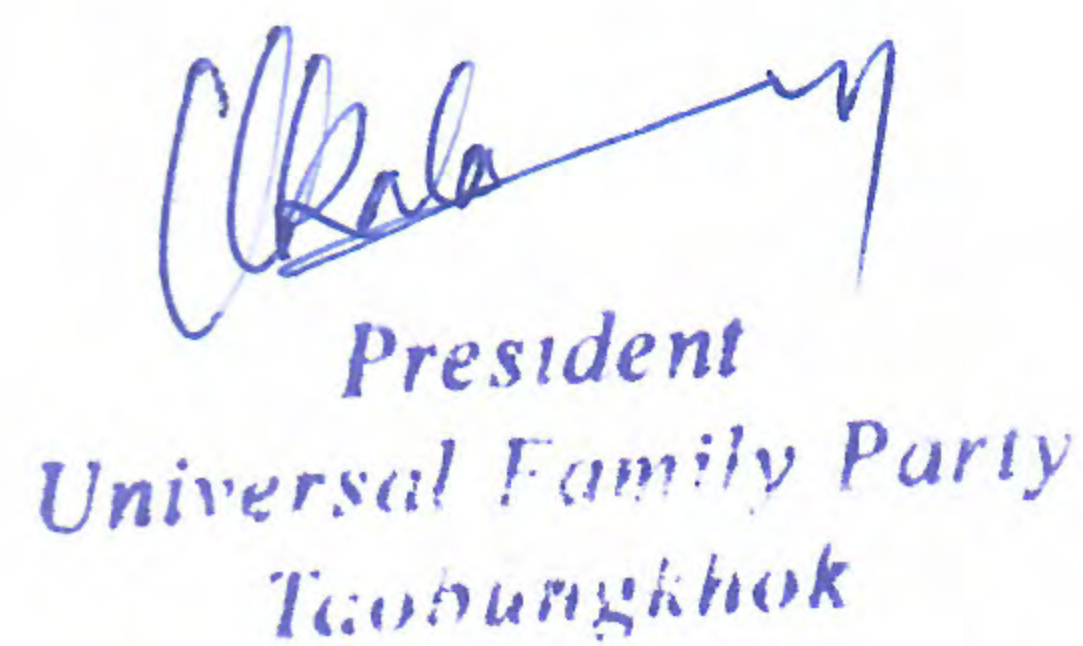 President
Universal Family Party
Taobungkhok